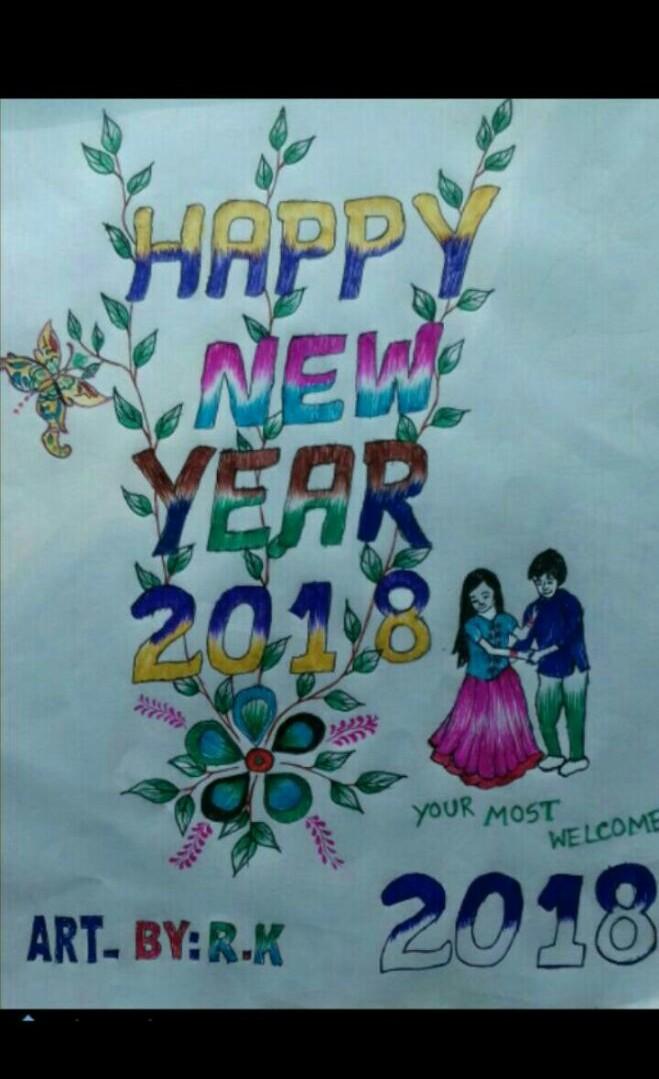 HAPPY
NEW
YEAR
2018
YOUR MOST
WELCOME
2018
ART- BY: R.K